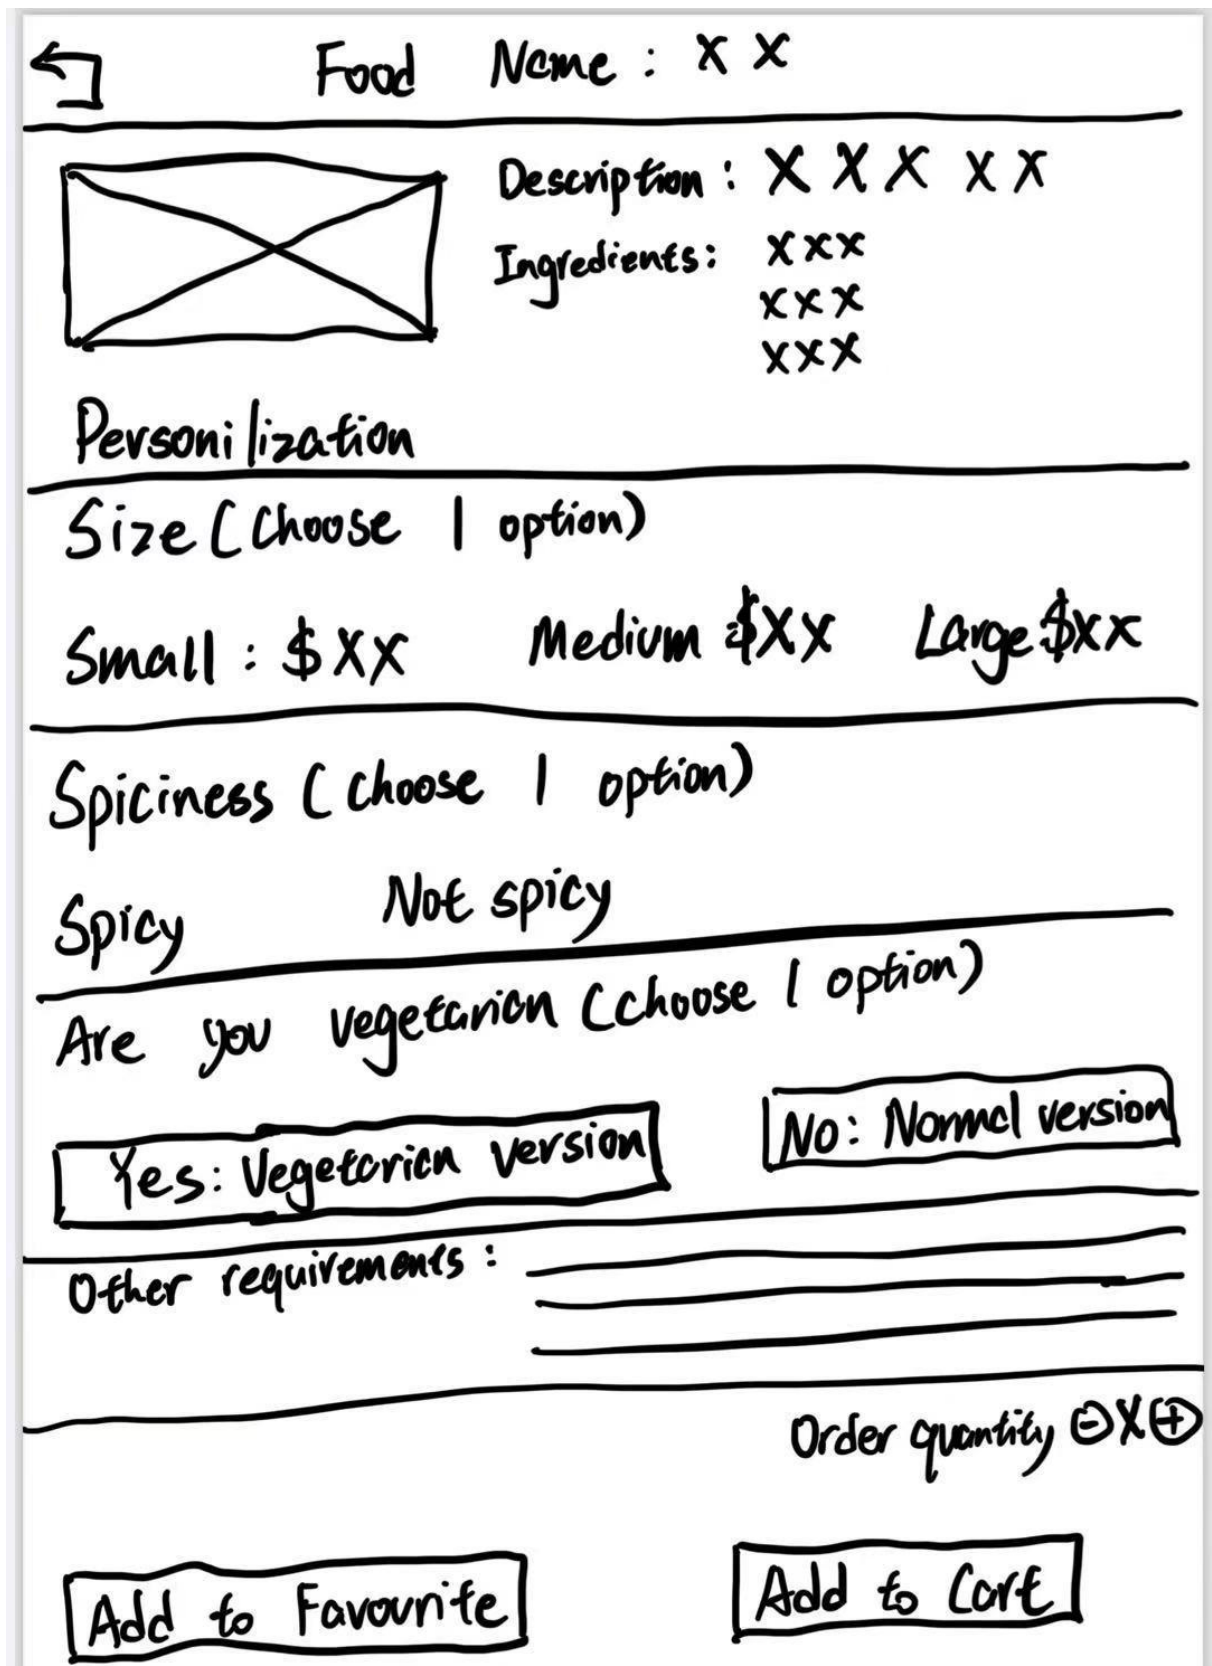 Food Name : X X
Description : X X X X X
Ingredients: XXX
XXX
XXX
Personilization
Size (Choose 1 option)
Small : $XX Medium $XX Large $XX
Spiciness (Choose 1 option)
Spicy Not spicy
Are you vegetarian (choose 1 option)
Yes: Vegetarian version No: Normal version
Other requirements :
Order quantity - X +
Add to Favourite Add to Cart